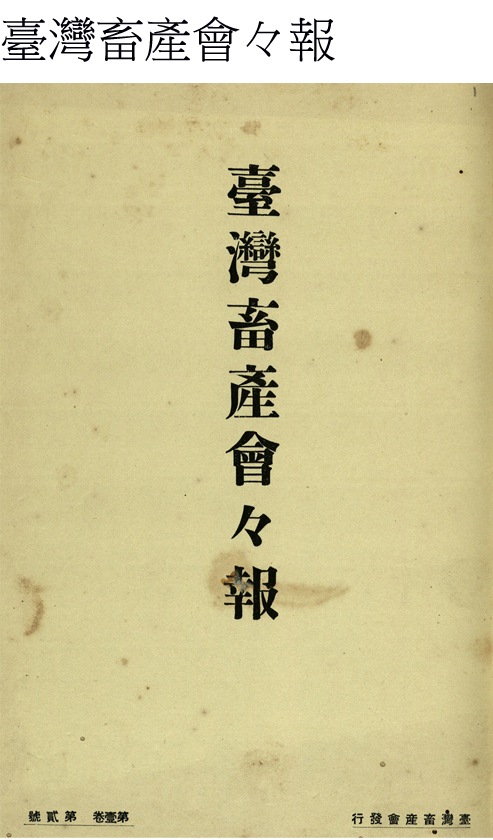 臺灣畜產會々報
臺灣畜產會々報
臺灣畜產會發行
第壹卷 第貳號